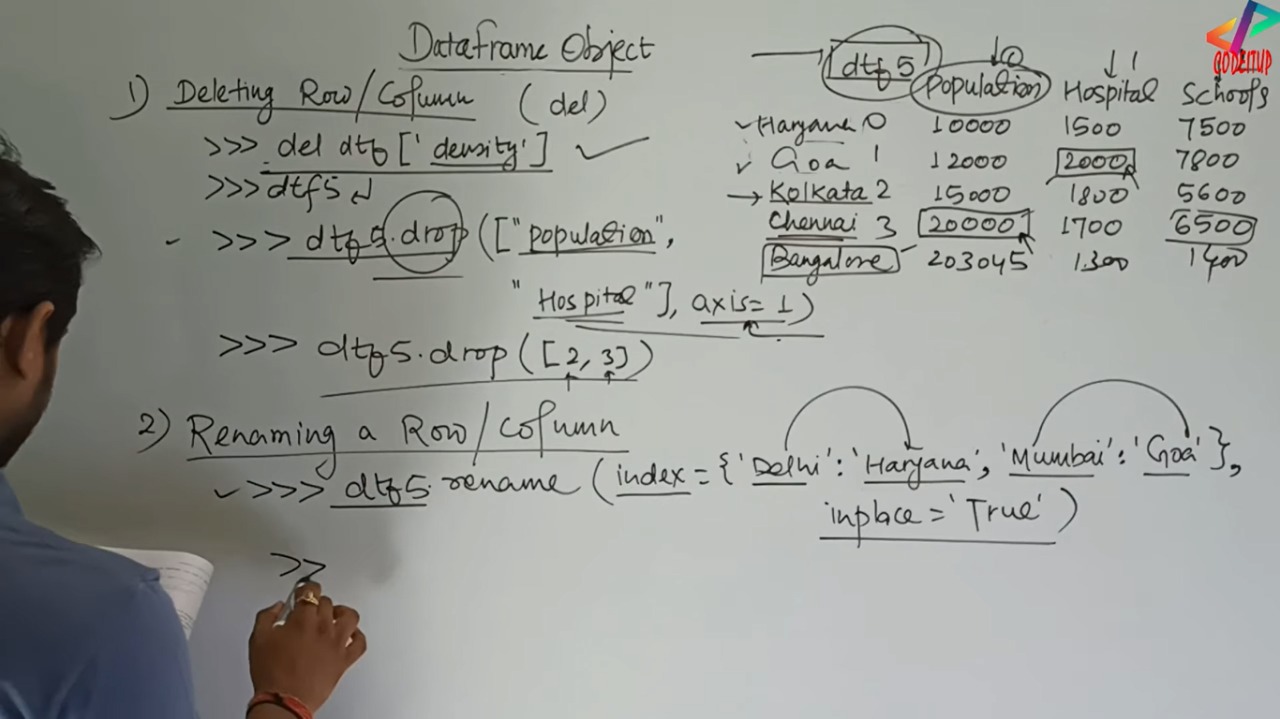 Dataframe Object
1) Deleting Row/Column (del)
>>> del dtf ['density']
>>> dtf5
>>> dtf5.drop (["population",
"Hospital"], axis=1)
>>> dtf5.drop ([2,3])
2) Renaming a Row/Column
>>> dtf5.rename (index = {'Delhi': 'Haryana', 'Mumbai': 'Goa'},
inplace = 'True')
>>
dtf5 Population 0 Hospital 1 Schools
Haryana 0 10000 1500 7500
Goa 1 12000 2000 7800
Kolkata 2 15000 1800 5600
Chennai 3 20000 1700 6500
Bangalore 203045 1300 1400
CODEITUP